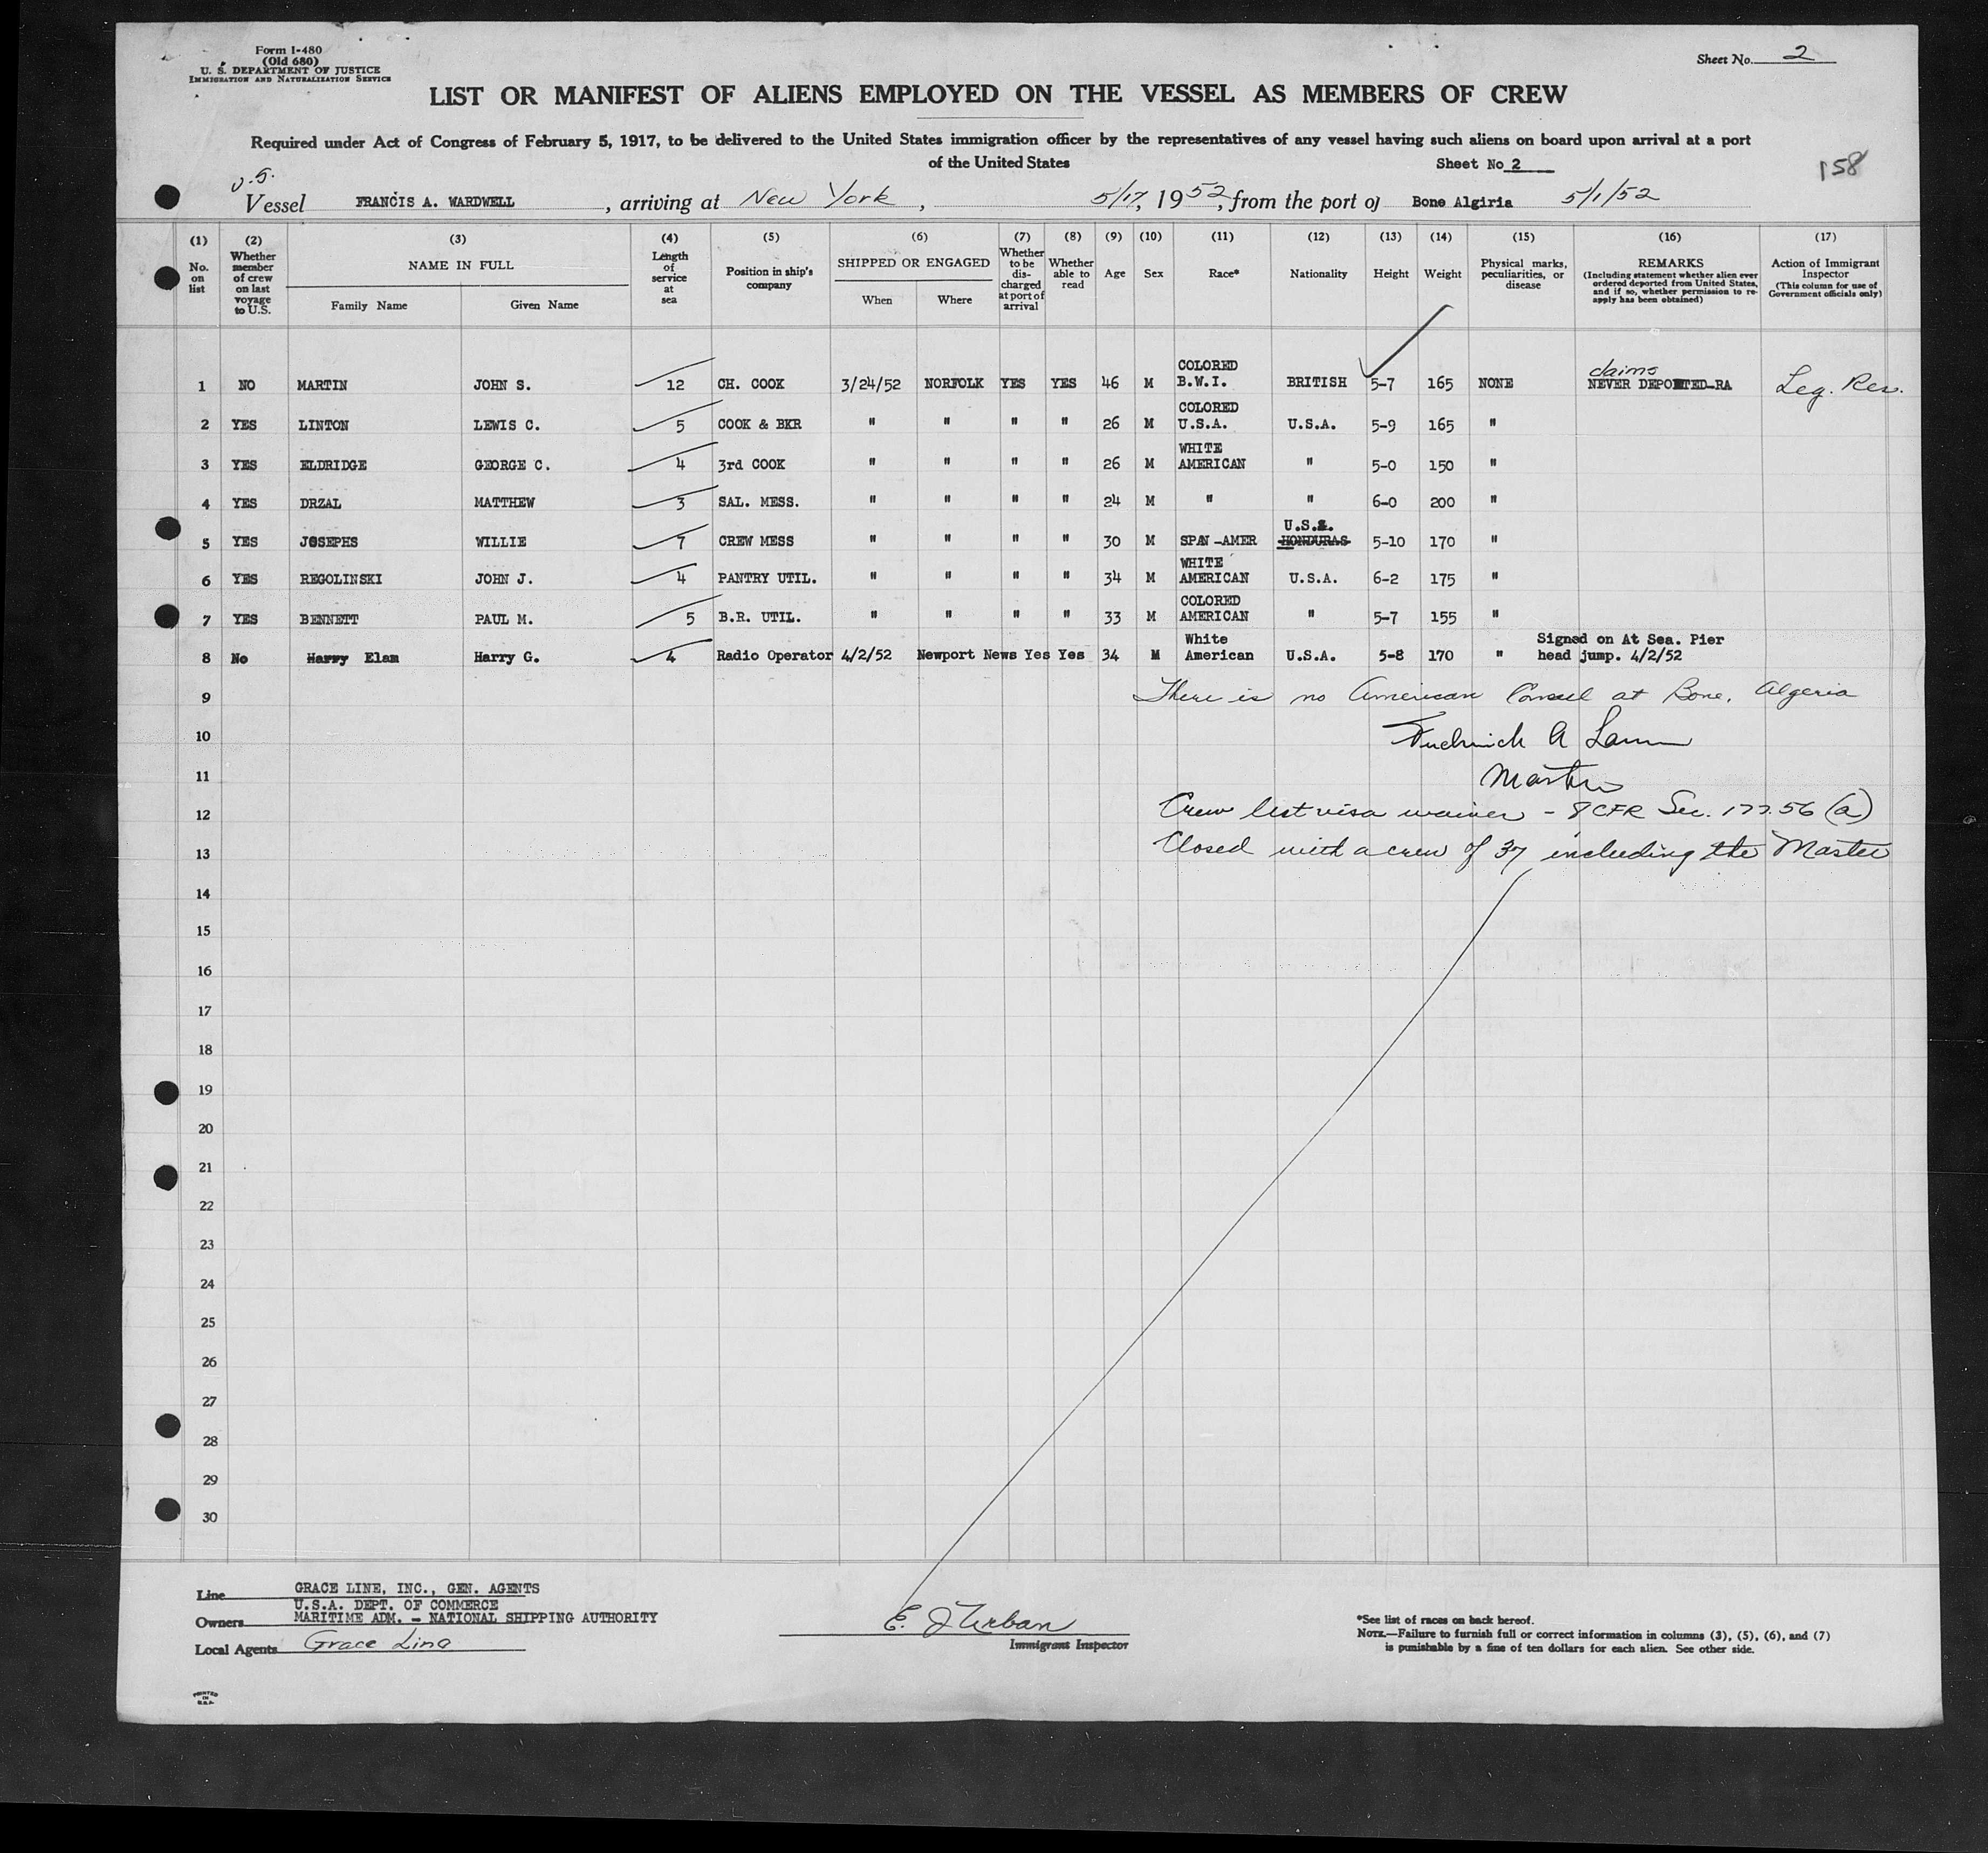 Form I-480
(Old 680)
U. S. DEPARTMENT OF JUSTICE
IMMIGRATION AND NATURALIZATION SERVICE
Sheet No. 2
LIST OR MANIFEST OF ALIENS EMPLOYED ON THE VESSEL AS MEMBERS OF CREW
Required under Act of Congress of February 5, 1917, to be delivered to the United States immigration officer by the representatives of any vessel having such aliens on board upon arrival at a port
of the United States
Sheet No 2
158
Vessel FRANCIS A. WARDWELL, arriving at New York, 5/17, 1952, from the port of Bone Algiria 5/1/52
(1) (2) (3) (4) (5) (6) (7) (8) (9) (10) (11) (12) (13) (14) (15) (16) (17)
No. on list
Whether member of crew on last voyage to U.S.
NAME IN FULL
Family Name Given Name
Length of service at sea
Position in ship's company
SHIPPED OR ENGAGED
When Where
Whether to be discharged at port of arrival
Whether able to read
Age
Sex
Race*
Nationality
Height
Weight
Physical marks, peculiarities, or disease
REMARKS
(Including statement whether alien ever ordered deported from United States, and if so, whether permission to reapply has been obtained)
Action of Immigrant Inspector
(This column for use of Government officials only)
1 NO MARTIN JOHN S. 12 CH. COOK 3/24/52 NORFOLK YES YES 46 M COLORED B.W.I. BRITISH 5-7 165 NONE claims NEVER DEPORTED-RA Leg. Res.
2 YES LINTON LEWIS C. 5 COOK & BKR " " " " 26 M COLORED U.S.A. U.S.A. 5-9 165 "
3 YES ELDRIDGE GEORGE C. 4 3rd COOK " " " " 26 M WHITE AMERICAN " 5-0 150 "
4 YES DRZAL MATTHEW 3 SAL. MESS. " " " " 24 M " " 6-0 200 "
5 YES JOSEPHS WILLIE 7 CREW MESS " " " " 30 M SPAN-AMER U.S.A. HONDURAS 5-10 170 "
6 YES REGOLINSKI JOHN J. 4 PANTRY UTIL. " " " " 34 M WHITE AMERICAN U.S.A. 6-2 175 "
7 YES BENNETT PAUL M. 5 B.R. UTIL. " " " " 33 M COLORED AMERICAN " 5-7 155 "
8 No Harry Elam Harry G. 4 Radio Operator 4/2/52 Newport News Yes Yes 34 M White American U.S.A. 5-8 170 " Signed on At Sea. Pier head jump. 4/2/52
9 There is no American Consul at Bone, Algeria
10 Frederick A
11 Master
12 Crew list visa waiver - 8 CFR Sec. 177.56 (a)
13 Closed with a crew of 37 including the Master
14
15
16
17
18
19
20
21
22
23
24
25
26
27
28
29
30
Line GRACE LINE, INC., GEN. AGENTS
U.S.A. DEPT. OF COMMERCE
Owners MARITIME ADM. - NATIONAL SHIPPING AUTHORITY
Local Agents Grace Line
E. J Urban
Immigrant Inspector
*See list of races on back hereof.
NOTE.—Failure to furnish full or correct information in columns (3), (5), (6), and (7)
is punishable by a fine of ten dollars for each alien. See other side.
PRINTED
IN
U.S.A.